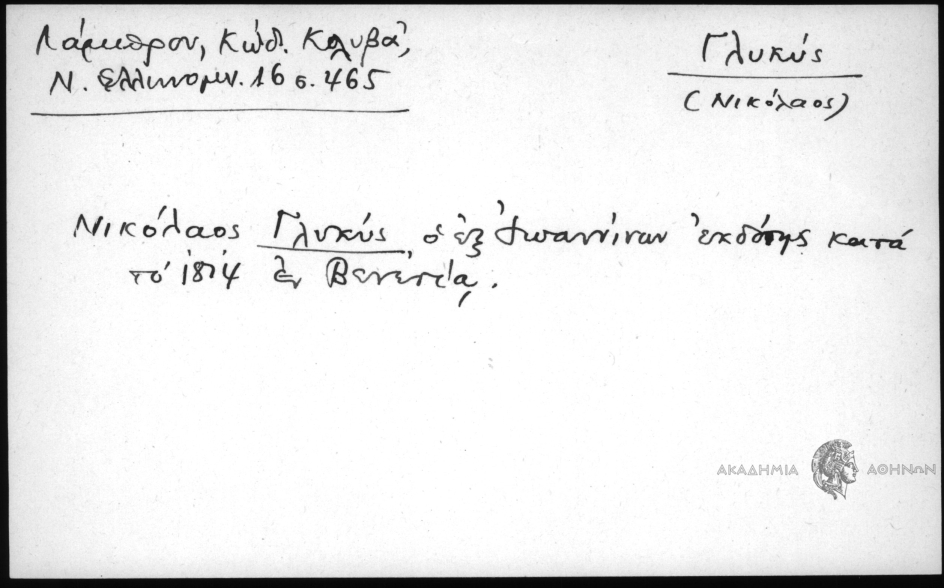 Λάμπρου, Κώδ. Κολυβᾶ,
Ν. Ἑλληνομν. 16 σ. 465
Γλυκύς
(Νικόλαος)
Νικόλαος Γλυκύς ὁ ἐξ Ἰωαννίνων ἐκδότης κατά
τό 1814 ἐν Βενετίᾳ.
ΑΚΑΔΗΜΙΑ ΑΘΗΝΩΝ